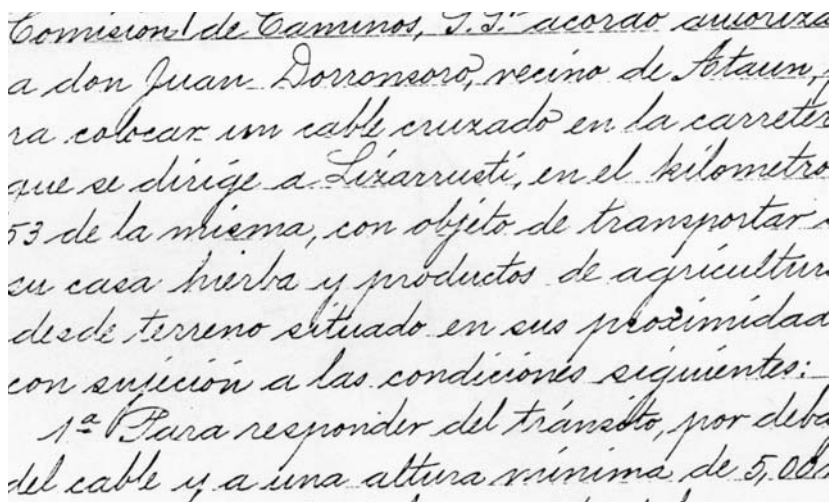 Comisión de Caminos, S.S.ª acordó autoriza
a don Juan Dorronsoro, vecino de Ataun, p
ra colocar un cable cruzado en la carreter
que se dirige a Lizarrusti, en el kilometro
53 de la misma, con objeto de transportar a
su casa hierba y productos de agricultura
desde terreno situado en sus proximidad
con sujeción a las condiciones siguientes:
1ª Para responder del tránsito, por deba
del cable y a una altura mínima de 5,00